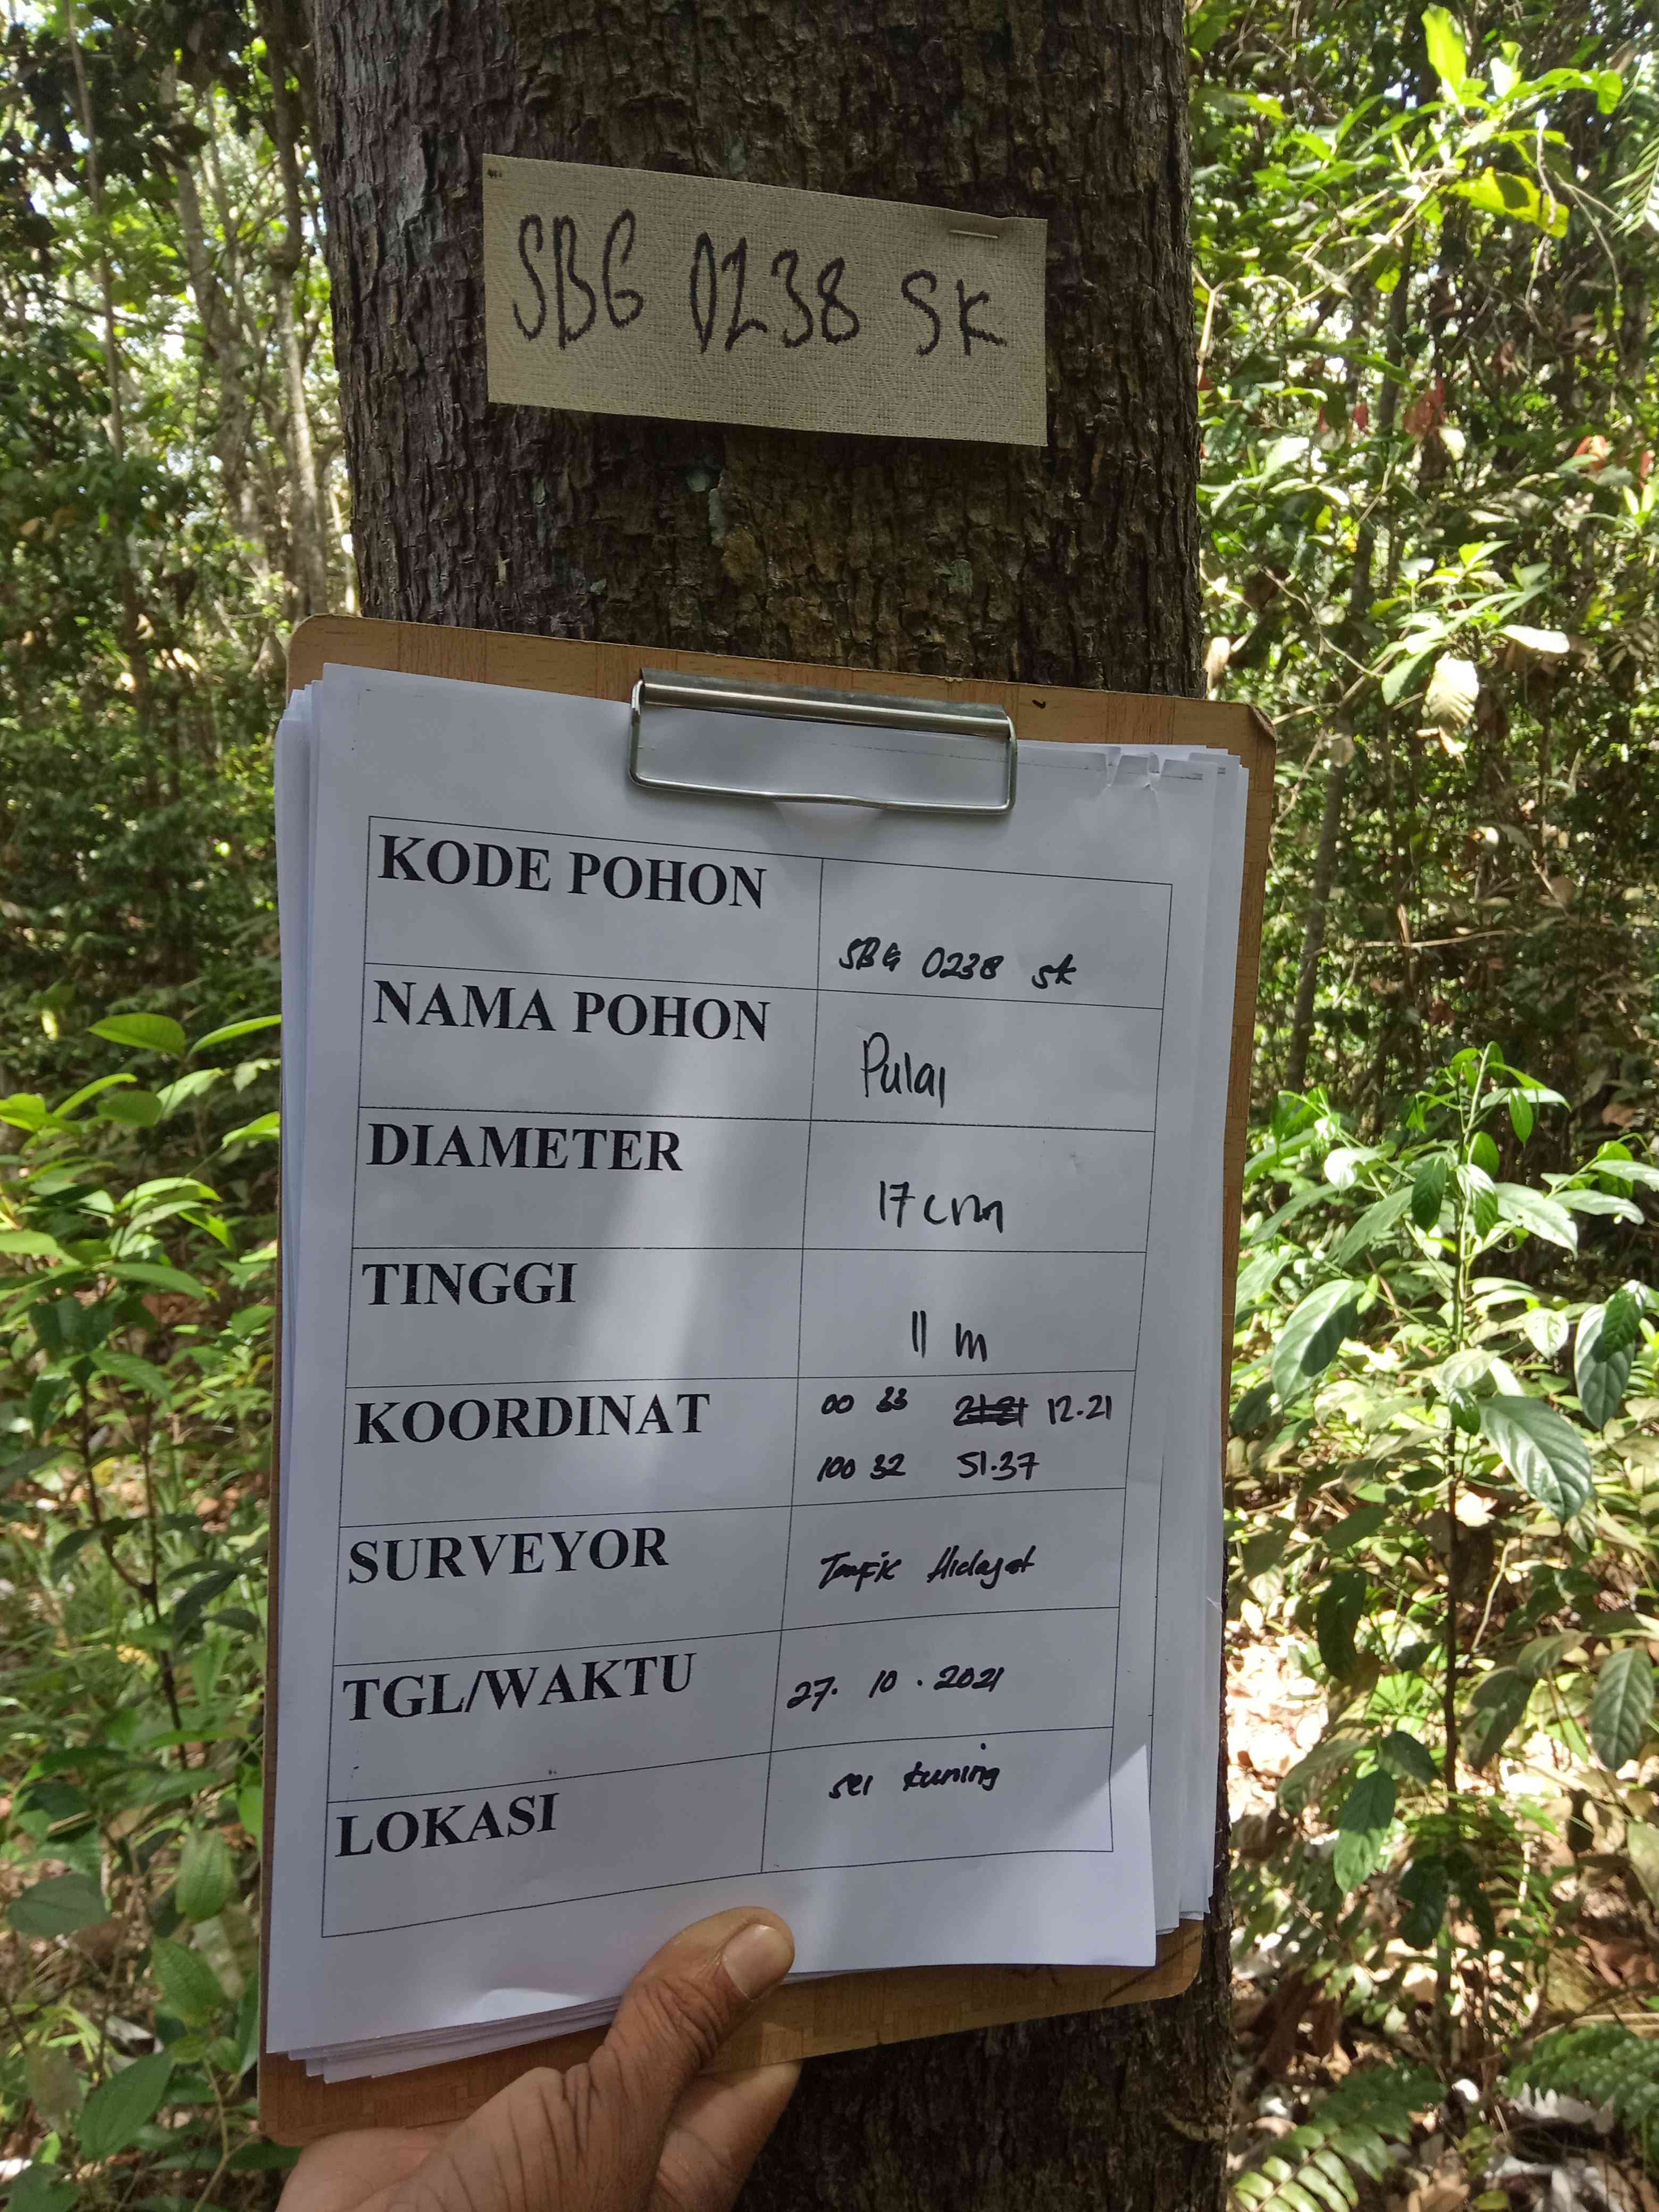 SBG 0238 SK
KODE POHON
SBG 0238 SK
NAMA POHON
Pulai
DIAMETER
17 cm
TINGGI
11 m
KOORDINAT
00 33 12.21
100 32 51.37
SURVEYOR
Taufik Hidayat
TGL/WAKTU
27. 10 . 2021
LOKASI
sei kuning